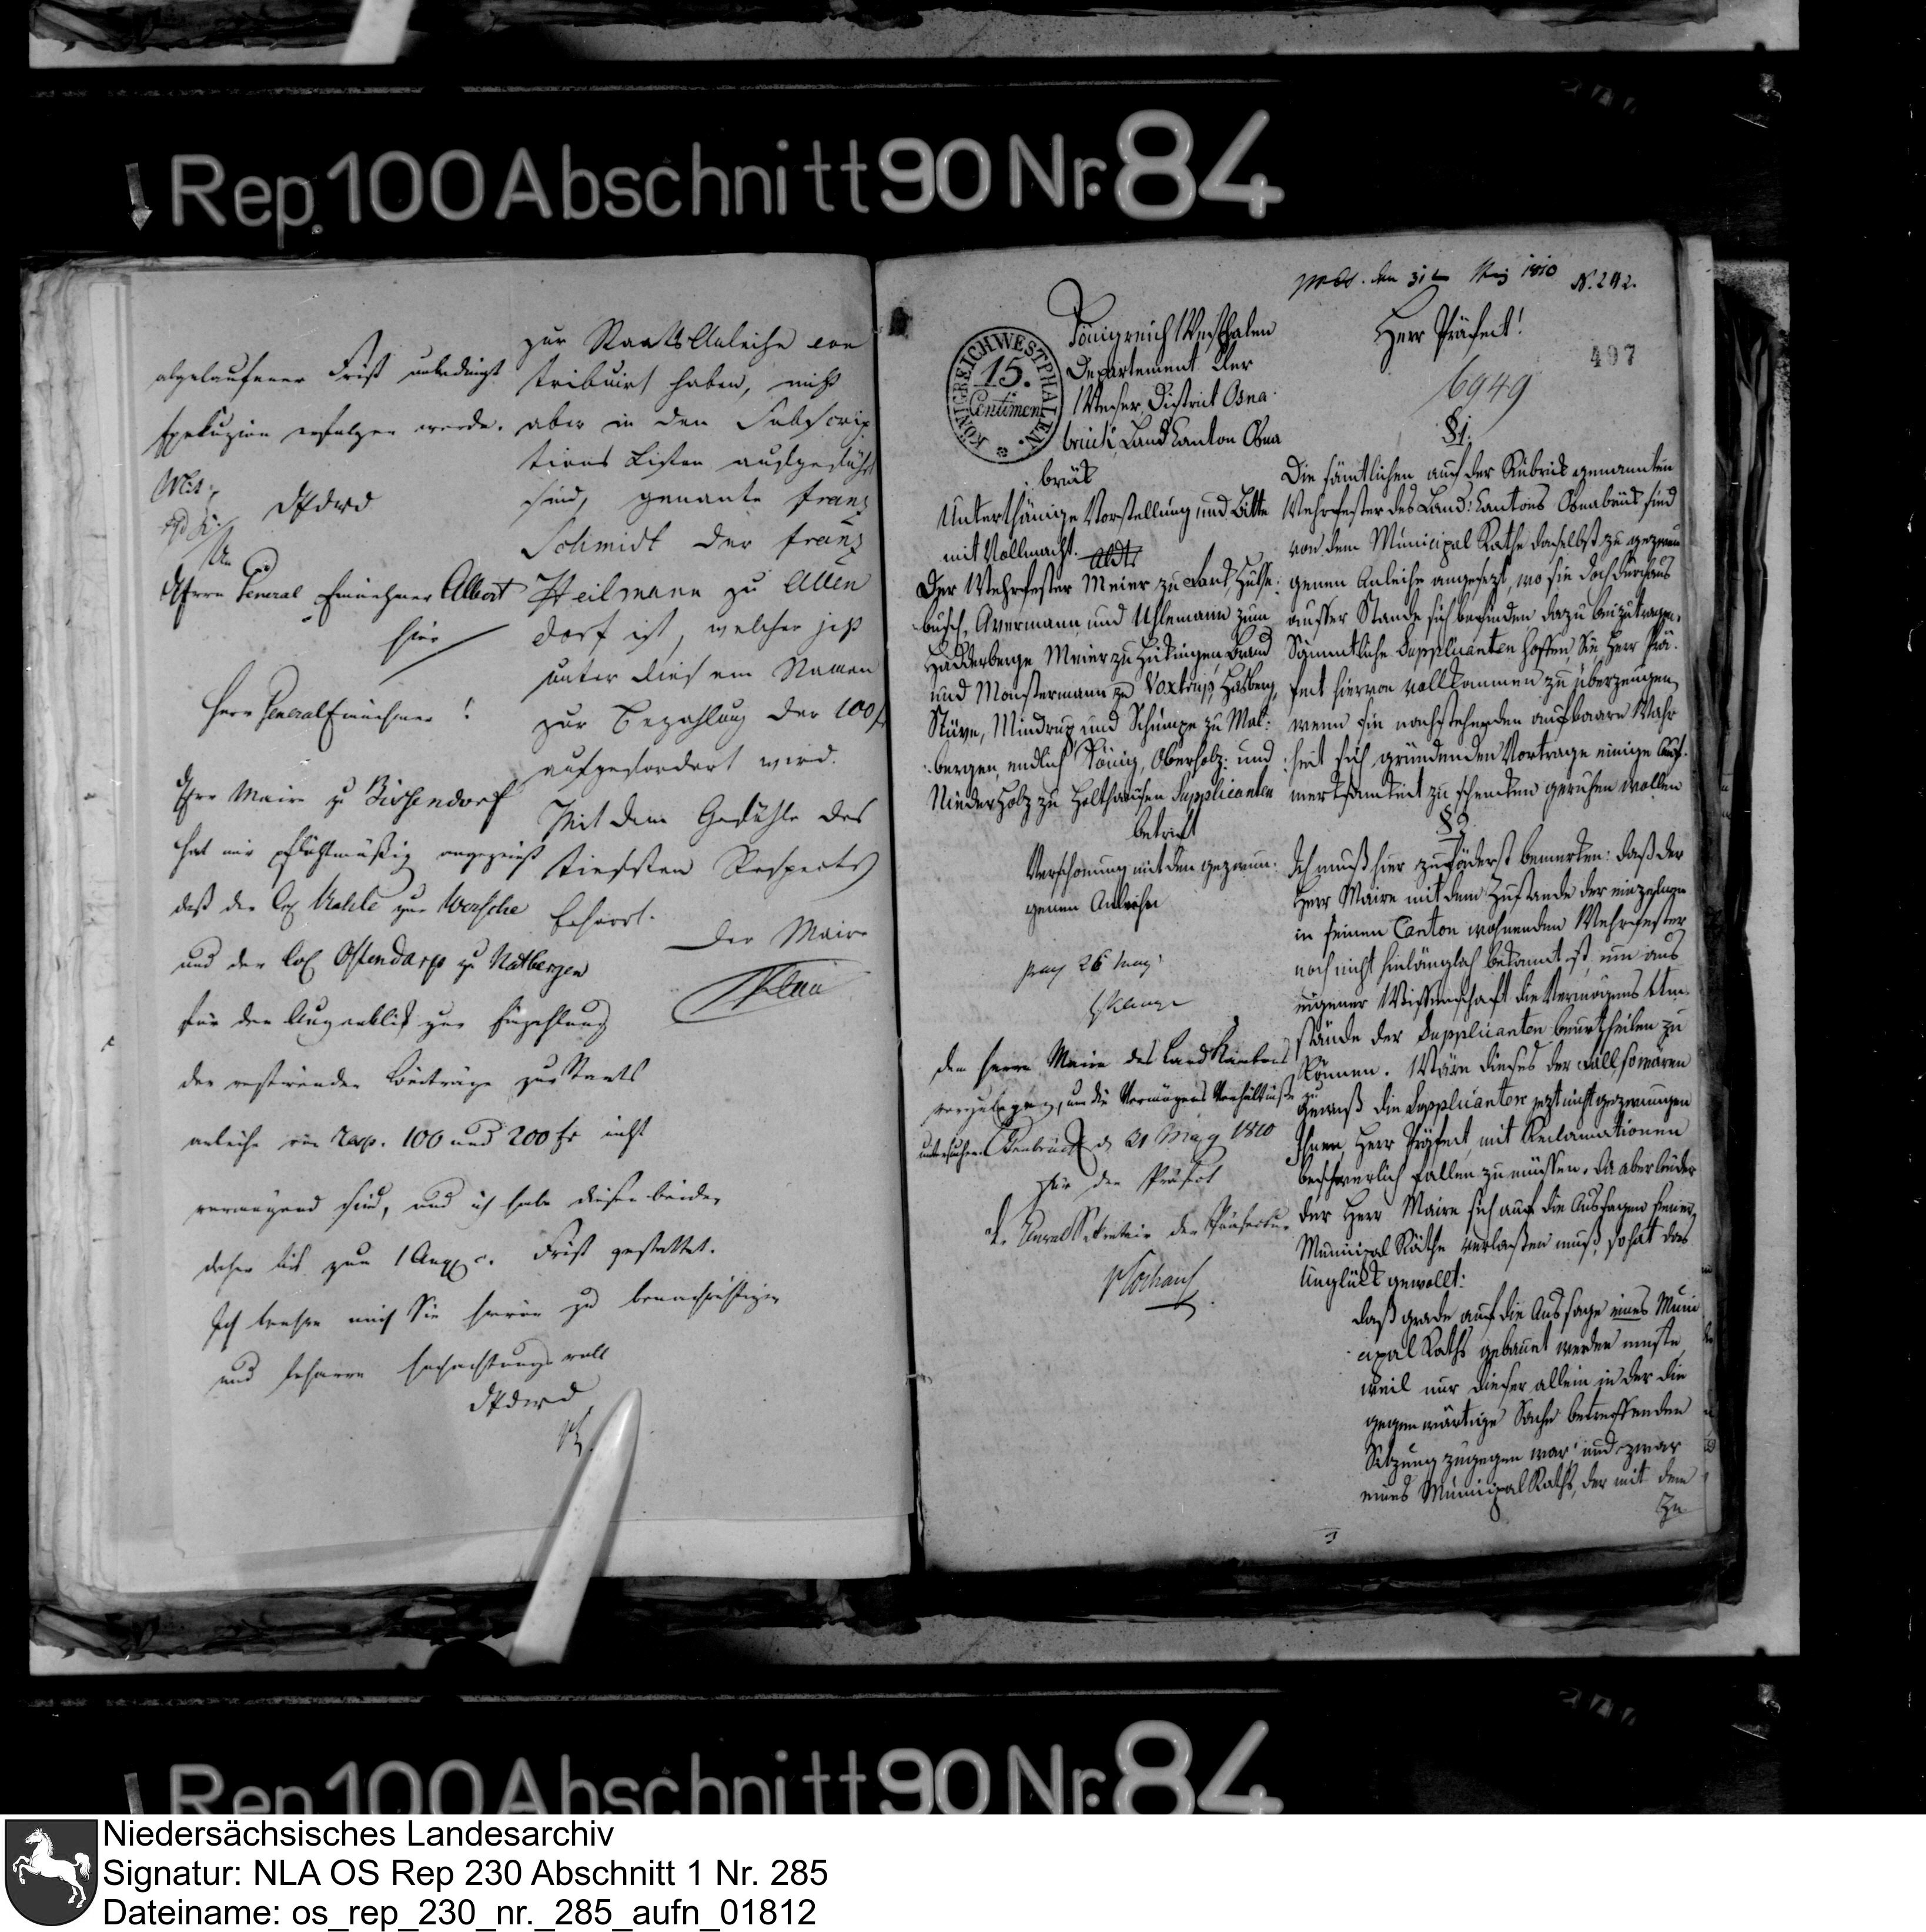 Rep. 100 Abschnitt 90 Nr. 84
abgelaufener Frist unbedingt
Exekuzion erfolgen werde.
An
Herrn General Einnehmer Albert
hier
Herr General Einnehmer!
Herr Maire zu Bissendorf
hat mir pflichtmäßig angezeigt
daß der Col. Kahle zur Wersche
und der Col. Ostendarp zu Natbergen
für den Augenblick zur Einzahlung
der restirenden Beiträge zur Staats
anleihe von resp. 100 und 200 fr nicht
vermögend sind, und ich habe diesen beiden
daher bis zum 1 Aug. c. Frist gestattet.
Ich beehre mich Sie hievon zu benachrichtigen
und beharre hochachtungsvoll
zur Staats Anleihe con
tribuirt haben, nicht
aber in den Subscrip
tions Listen aufgeführt
sind, genante franz
Schmidt der franz
Heilmann zu Allen
dorf ist, welcher jetzt
unter diesem Namen
zur Bezahlung der 100 fr
aufgefordert wird.
Mit dem Gefühle des
tiefsten Respects
beharrt.
Der Maire
KÖNIGREICH WESTPHALEN.
15.
Centimen
Königreich Westphalen
Departement der
Weser, District Osna
brück, Land Canton Osna
brück
Unterthänige Vorstellung und Bitte
mit Vollmacht.
Der Wehrfester Meier zu Hülse
busch, Avermann und Uhlemann zum
Hadderberge Meier zu Hickingen, Brand
und Monstermann zu Voxtrup, Hasberg,
Stüve, Mindrup und Schimpe zu Mal
bergen, endlich König, Oberholz und
Niederholz zu Holthausen Supplicanten
betrift
Verschonung mit den gezwun
genen Anleihe
pras 26 May
Dem Herrn Maire des Land Kantons
vorzulegen, um die Vermögens Verhältniße zu
untersuchen. Osnabrück d. 21 May 1810
Für den Präfect
d. General Secretair der Präfectur
den 31 May 1810 N. 292.
Herr Präfect!
497
6949
§ 1.
Die sämtlichen auf der Rubrick genannten
Wehrfester des Land Cantons Osnabrück sind
von dem Municipal Rathe daselbst zu gezwun
genen Anleihe angesezt, wo sie doch durchaus
ausser Stande sich befinden dazu beizutragen.
Sämmtliche Supplicanten hoffen, Sie Herr Prä
fect hiervon vollkommen zu überzeugen,
wenn Sie nachstehenden auf baare Wahr
heit sich gründenden Vortrage einige Auf
merksamkeit zu schencken geruhen wollen
§ 2.
Ich muß hier zuföderst bemerken: daß der
Herr Maire mit dem Zustande der einzelnen
in seinen Canton wohnenden Wehrfester
noch nicht hinlänglich bekannt ist, um aus
eigener Wissenschaft die Vermögens Um
stände der Supplicanten beurtheilen zu
können. Wäre dieses der Fall so wären
gewiß die Supplicanten jezt nicht gezwungen
Ihnen, Herr Präfect, mit Reclamationen
beschwerlich fallen zu müssen. Da aber leider
der Herr Maire sich auf die Aussagen seiner
Municipal Räthe verlaßen muß, so hat das
Unglück gewollt:
daß grade auf die Aussage eines Muni
cipal Raths gebauet werden muste,
weil nur dieser allein in der die
gegenwärtige Sache betreffenden
Sitzung zugegen war, und zwar
eines Municipal Raths, der mit dem
Zu
Rep. 100 Abschnitt 90 Nr. 84
Niedersächsisches Landesarchiv
Signatur: NLA OS Rep 230 Abschnitt 1 Nr. 285
Dateiname: os_rep_230_nr._285_aufn_01812